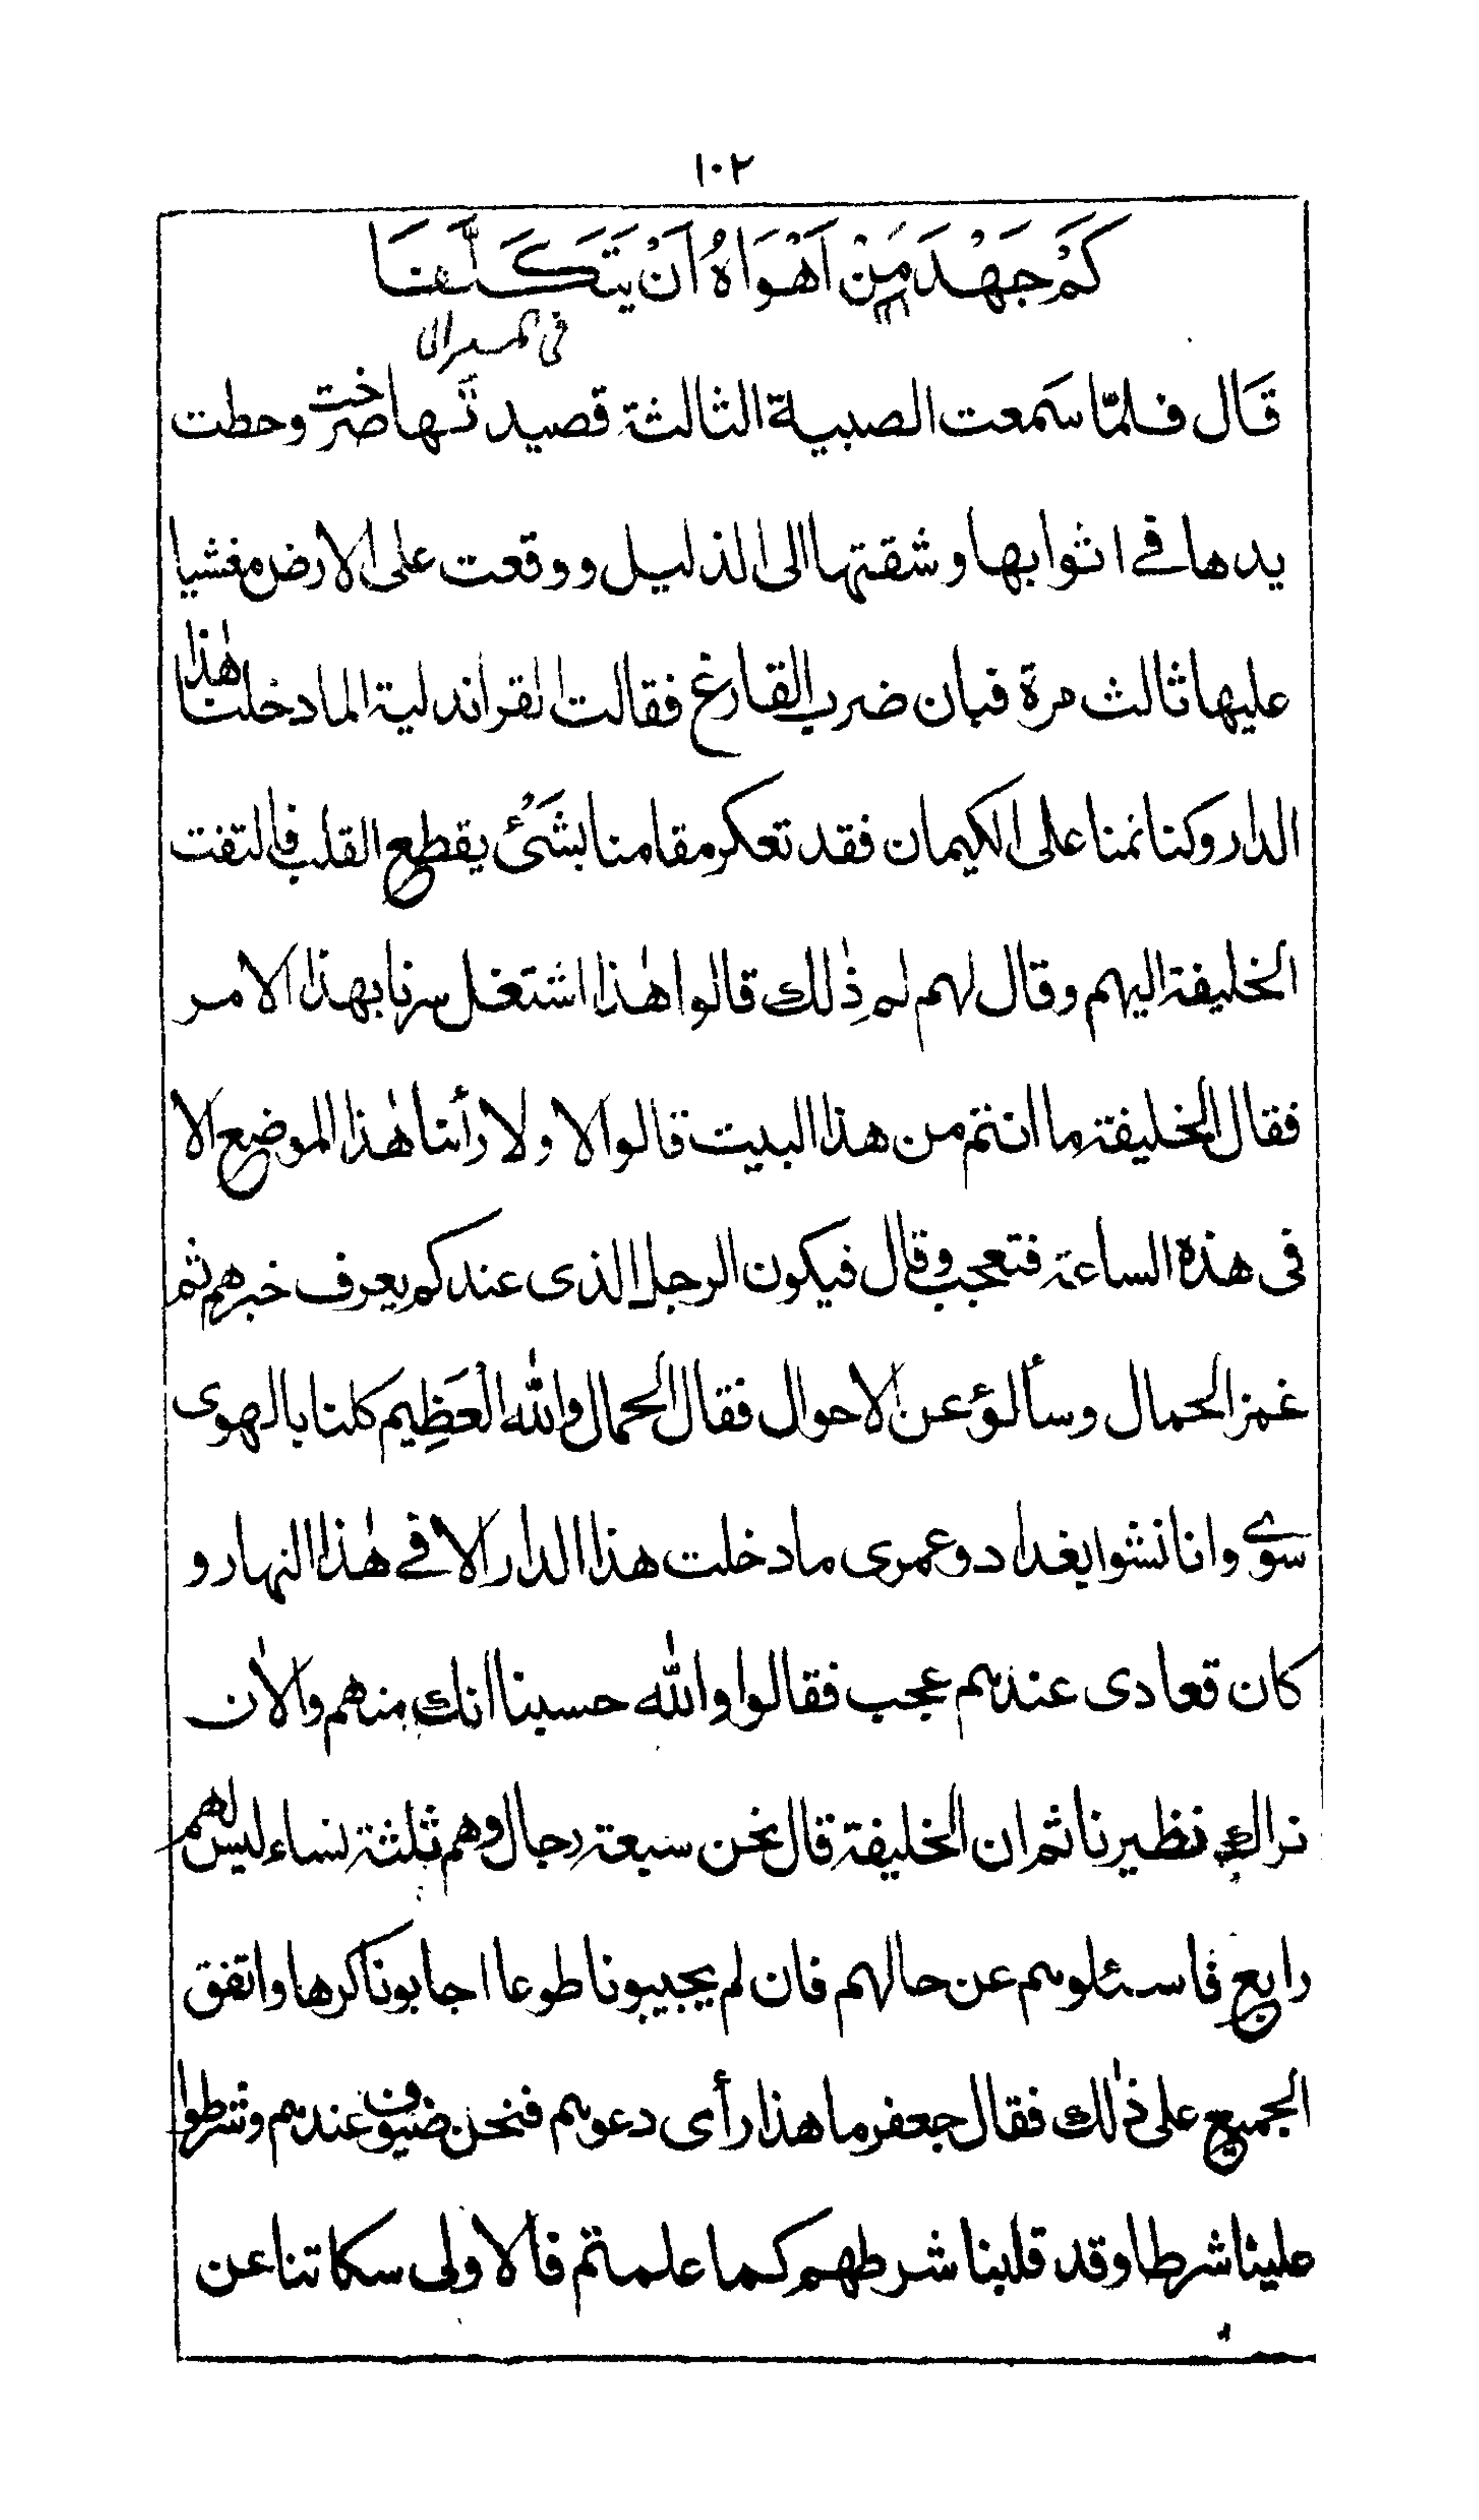 ١٠٢
كَمْ جَهْدَ مَنْ اَهْوَاهُ اَنْ يَتَكَلَّفَنَا
قَال فلمّا سَمعت الصبية الثالثة قصيدتَها صرخت وحطت
يدها في اثوابها وشقتها الى الذليل ووقعت على الارض مغشيا
عليها ثالث مرة فبان ضرب القارغ فقالت القراندلية الما دخلنا هٰذا
الدار وكنا نمنا على الكيمان فقد تعكر مقامنا بشَىُٔ يقطع القلب فالتفت
الخليفة اليهم وقال لهم لم ذٰلك قالوا هٰذا اشتغل سرنا بهذا الامر
فقال الخليفة ما انتم من هذا البيت قالوا لا ولا رأينا هٰذا الموضع الا
فى هذه الساعة فتعجب وقال فيكون الرجل الذى عندكم يعرف خبرهم ثم
غمز الحمال وسألؤ عن الاحوال فقال الحمال والله الْعَظِيم كلنا بالهوى
سوى وانا نشوا بغداد وعمرى ما دخلت هذا الدار الا في هٰذا النهار و
كان قعادى عندهم عجب فقالوا والله حسبنا انك منهم والاٰن
نراك نظيرنا ثم ان الخليفة قال نحن سبعة رجال وهم ثلثة نساء ليس لهم
رابع فاسئلوهم عن حالهم فان لم يجيبونا طوعا اجابونا كرها واتفق
الجميع على ذٰلك فقال جعفر ما هذا رأى دعوهم فنحن ضيوف عندهم وشرطوا
علينا شرطا وقد قلبنا شرطهم كما علمتم فالاولى سكاتنا عن